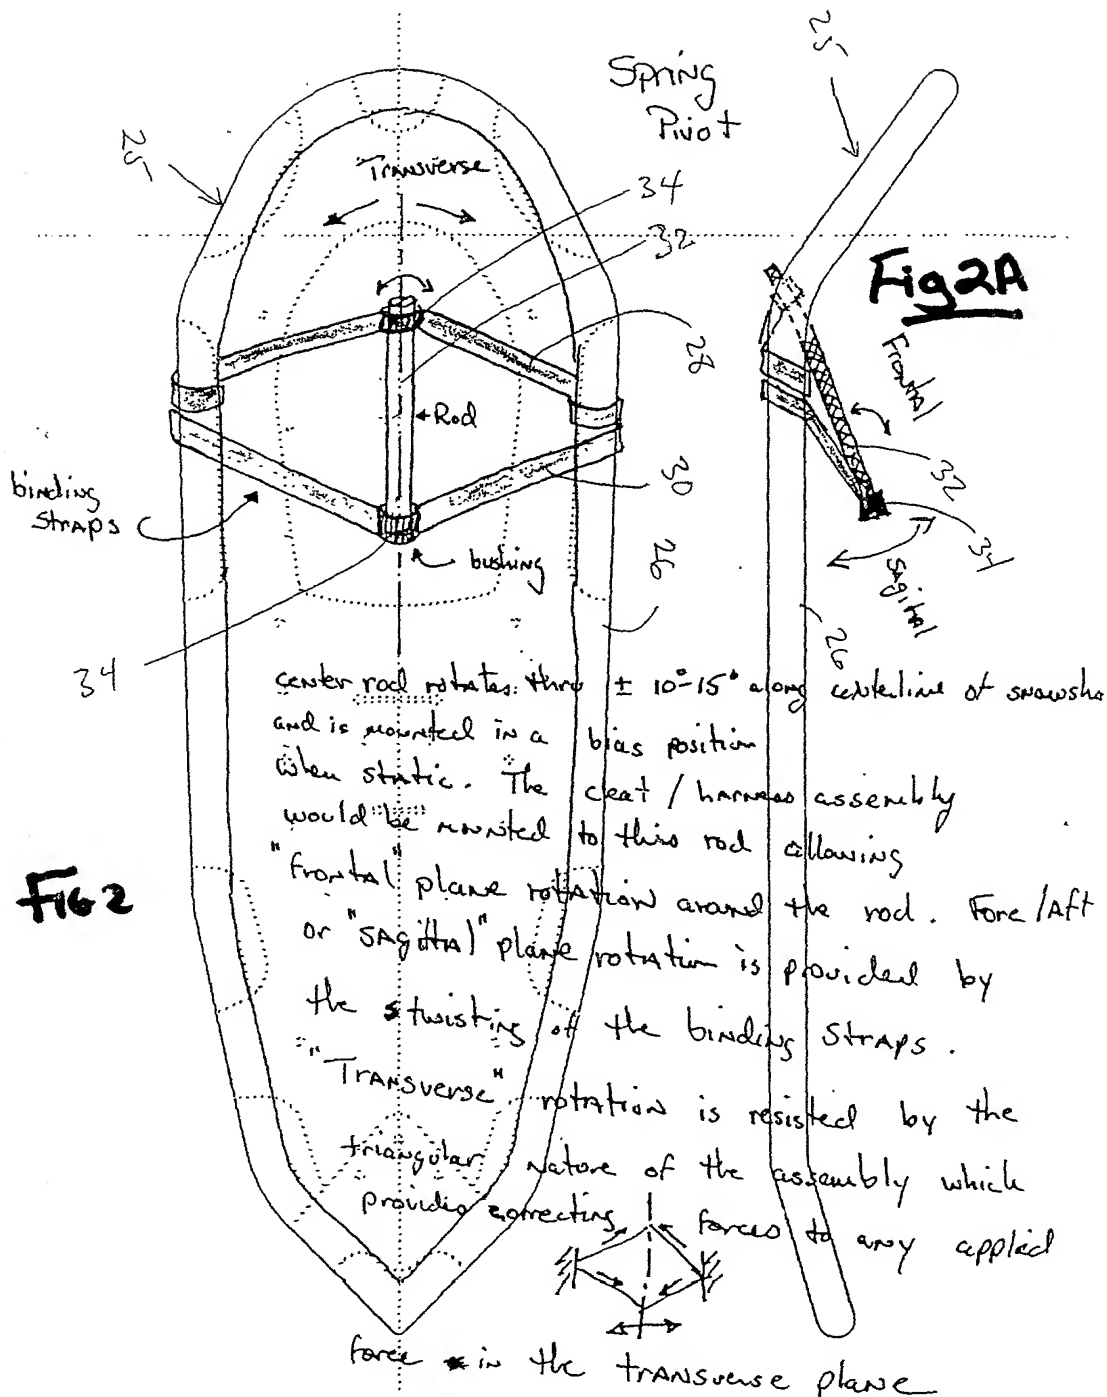 Spring
Pivot
25
25
Transverse
34
32
Fig 2A
Frontal
28
Rod
binding
straps
30
32
34
Sagital
26
bushing
26
34
center rod rotates thru ± 10°-15° along centerline of snowsho
and is mounted in a bias position
when static. The cleat / harness assembly
would be mounted to this rod allowing
"frontal" plane rotation around the rod. Fore/Aft
or "sagittal" plane rotation is provided by
the twisting of the binding straps.
"Transverse" rotation is resisted by the
triangular nature of the assembly which
provides correcting forces to any applied
force in the transverse plane
FIG 2